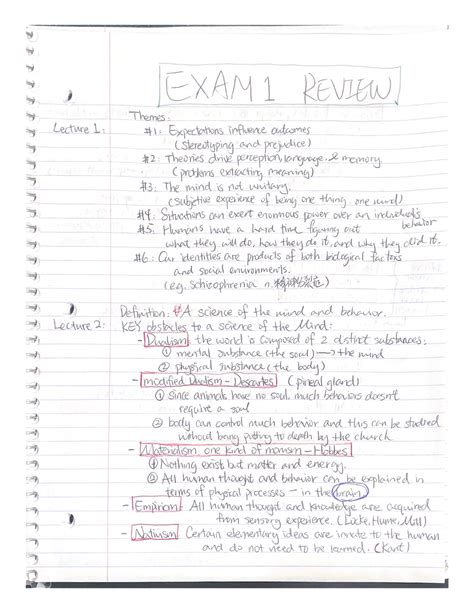 EXAM 1 REVIEW
Themes:
Lecture 1: #1: Expectations influence outcomes
(stereotyping and prejudice)
#2: Theories drive perception, language, & memory.
(problems extracting meaning)
#3: The mind is not unitary.
(subjective experience of being one thing, one mind)
#4: Situations can exert enormous power over an individual's behavior
#5: Humans have a hard time figuring out
what they will do, how they do it, and why they did it.
#6: Our identities are products of both biological factors
and social environments.
(e.g. Schizophrenia n. 精神分裂症)
Definition: A science of the mind and behavior.
Lecture 2: KEY obstacles to a science of the Mind:
- Dualism: the world is composed of 2 distinct substances:
① mental substance (the soul) → the mind
② physical substance (the body)
- modified Dualism - Descartes (pineal gland)
① since animals have no soul, much behaviors doesn't
require a soul
② body can control much behavior and this can be studied
without being putting to death by the church
- Materialism: one kind of monism - Hobbes
① Nothing exist but matter and energy.
② All human thought and behavior can be explained in
terms of physical processes - in the brain
- Empiricism: All human thought and knowledge are acquired
from sensory experience. (Locke, Hume, Mill)
- Nativism: Certain elementary ideas are innate to the human
and do not need to be learned. (Kant)